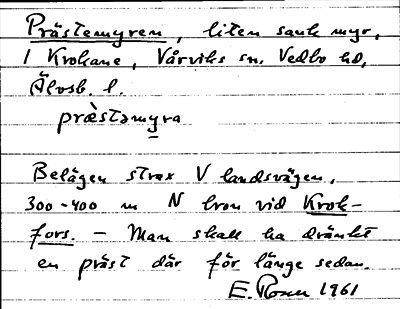 Prästemyren, liten sank myr,
i Krokane, Vårviks sn. Vedbo hd,
Älvsb. l.
præ̀stəmyra
Belägen strax V landsvägen,
300-400 m N bron vid Krok-
fors. – Man skall ha dränkt
en präst där för länge sedan.
E. Rosén 1961